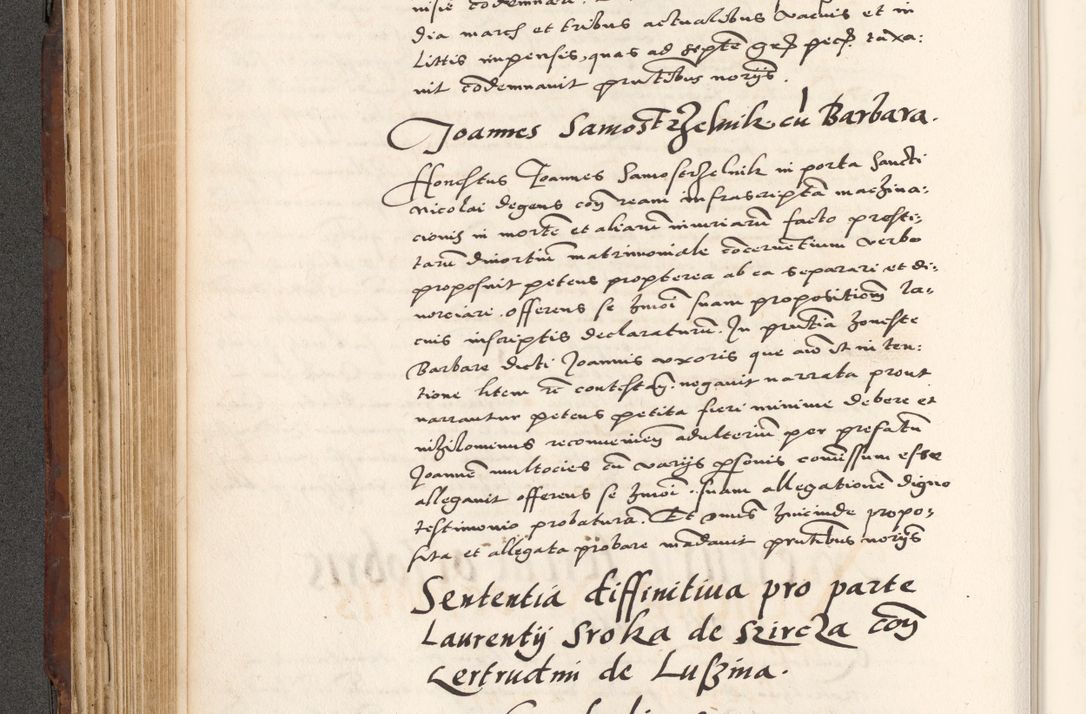 dia march et tribus actualibus vacuis et in
littis impensis, quas ad septē grs pecp. taxa:
uit cōdemnauit prntibus norijs.
Joannes Samostrzelnik cū Barbara.
Honestus Joannes Samostrzelnik in porta Sancti
Nicolai degens con ream infrascriptā machina:
cionis in mortē et aliarū iniuriarū facto presti:
tarū diuortiū matrimoniale cōcernētium verbo
proposuit petens propterea ab ea separari et di:
uorciari. offerens se hmōi suam propositionē la:
cius inscriptis declaraturū. In prntia honeste
Barbare dicti Joannis vxoris que aīo et in ten:
tione litem rē contestan. negauit narrata prout
narrantur petens petita fieri minime debere et
nihilominus reconueniēn adulteriū per prefatū
Joannē multocies cū varijs psonis comissum esse
allegauit offerens se hmōi. suam allegationē digno
testimonio probaturā. Et dnus huicinde propo:
sita et allegata probare mādauit prntibus norijs
Sententia diffinitiua pro parte
Laurentij Sroka de Szircza con
Gertrudini de Lussina.